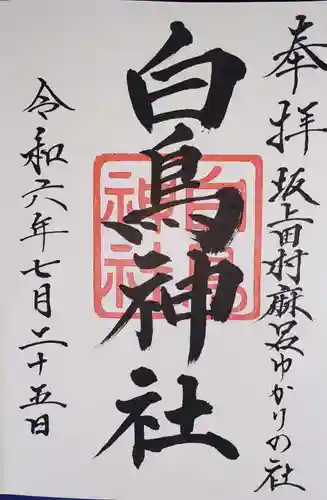 奉拝 坂上田村麻呂ゆかりの社
白鳥神社
白鳥神社
令和六年七月二十五日